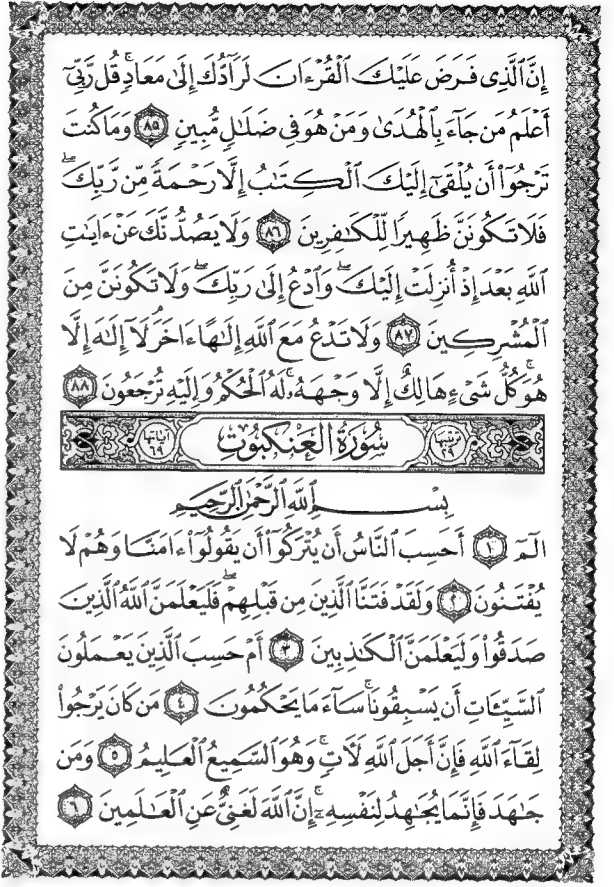 إِنَّ ٱلَّذِى فَرَضَ عَلَيْكَ ٱلْقُرْءَانَ لَرَآدُّكَ إِلَىٰ مَعَادٍۚ قُل رَّبِّىٓ
أَعْلَمُ مَن جَآءَ بِٱلْهُدَىٰ وَمَنْ هُوَ فِى ضَلَـٰلٍ مُّبِينٍ ٨٥ وَمَا كُنتَ
تَرْجُوٓا۟ أَن يُلْقَىٰٓ إِلَيْكَ ٱلْكِتَـٰبُ إِلَّا رَحْمَةً مِّن رَّبِّكَۖ
فَلَا تَكُونَنَّ ظَهِيرًا لِّلْكَـٰفِرِينَ ٨٦ وَلَا يَصُدُّنَّكَ عَنْ ءَايَـٰتِ
ٱللَّهِ بَعْدَ إِذْ أُنزِلَتْ إِلَيْكَۖ وَٱدْعُ إِلَىٰ رَبِّكَۖ وَلَا تَكُونَنَّ مِنَ
ٱلْمُشْرِكِينَ ٨٧ وَلَا تَدْعُ مَعَ ٱللَّهِ إِلَـٰهًا ءَاخَرَۘ لَآ إِلَـٰهَ إِلَّا
هُوَۚ كُلُّ شَىْءٍ هَالِكٌ إِلَّا وَجْهَهُۥۚ لَهُ ٱلْحُكْمُ وَإِلَيْهِ تُرْجَعُونَ ٨٨
ترتيبها ٢٩ سُورَةُ العَنكَبُوت آياتها ٦٩
بِسْمِ ٱللَّهِ ٱلرَّحْمَـٰنِ ٱلرَّحِيمِ
الٓمٓ ١ أَحَسِبَ ٱلنَّاسُ أَن يُتْرَكُوٓا۟ أَن يَقُولُوٓا۟ ءَامَنَّا وَهُمْ لَا
يُفْتَنُونَ ٢ وَلَقَدْ فَتَنَّا ٱلَّذِينَ مِن قَبْلِهِمْۖ فَلَيَعْلَمَنَّ ٱللَّهُ ٱلَّذِينَ
صَدَقُوا۟ وَلَيَعْلَمَنَّ ٱلْكَـٰذِبِينَ ٣ أَمْ حَسِبَ ٱلَّذِينَ يَعْمَلُونَ
ٱلسَّيِّـَٔاتِ أَن يَسْبِقُونَاۚ سَآءَ مَا يَحْكُمُونَ ٤ مَن كَانَ يَرْجُوا۟
لِقَآءَ ٱللَّهِ فَإِنَّ أَجَلَ ٱللَّهِ لَـَٔاتٍۚ وَهُوَ ٱلسَّمِيعُ ٱلْعَلِيمُ ٥ وَمَن
جَـٰهَدَ فَإِنَّمَا يُجَـٰهِدُ لِنَفْسِهِۦٓۚ إِنَّ ٱللَّهَ لَغَنِىٌّ عَنِ ٱلْعَـٰلَمِينَ ٦